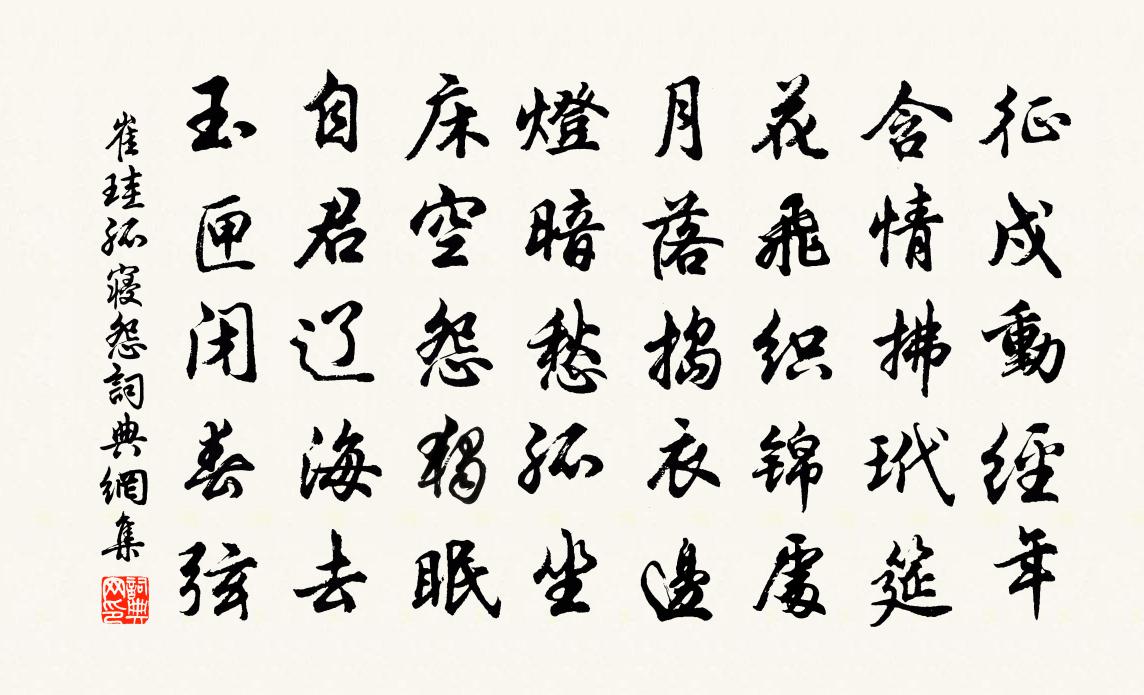 征戍動經年
含情拂玳筵
花飛织锦處
月落搗衣邊
燈暗愁孤坐
床空怨獨眠
自君辽海去
玉匣闭春弦
崔珪孤寝怨詞典網集
詞典网印